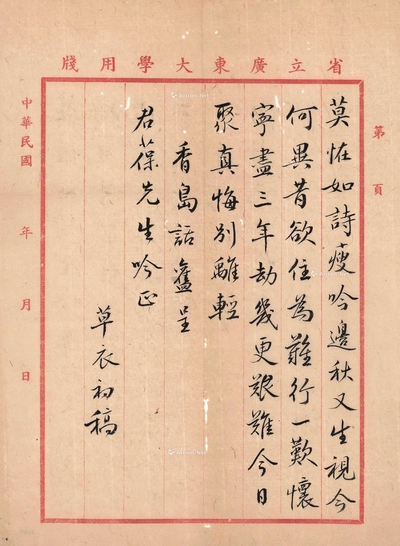 省立廣東大學用牋
第 頁
莫怪如詩瘦吟邊秋又生視今
何異昔欲住為難行一歎懷
寧盡三年劫幾更艱難今日
聚真悔別離輕
香島話舊呈
君葆先生吟正
草衣初稿
中華民國 年 月 日